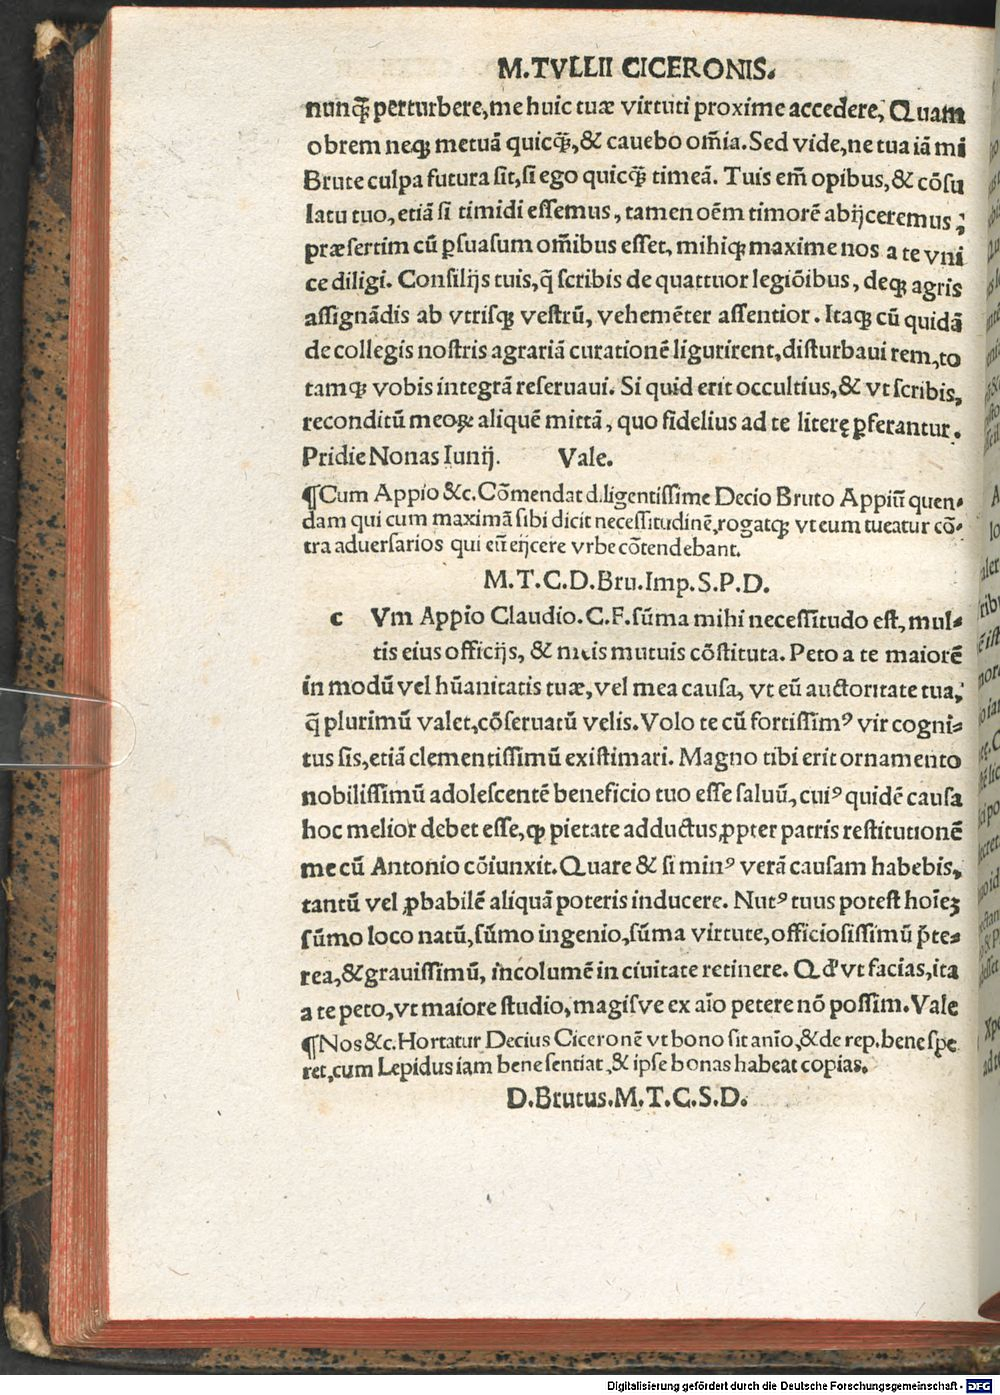 M.TVLLII CICERONIS.
nunq̃ perturbere,me huic tuæ virtuti proxime accedere, Quam
obrem neqꝫ metuā quicq̃,& cauebo om̄ia. Sed vide,ne tua iā mi
Brute culpa futura sit,si ego quicq̃ timeā. Tuis em̄ opibus,& cōsu
latu tuo,etiā si timidi essemus, tamen oēm timorē abijceremus;
præsertim cū ꝑsuasum om̄ibus esset, mihiqꝫ maxime nos a te vni
ce diligi. Consilijs tuis,q̄ scribis de quattuor legiōibus, deqꝫ agris
assignādis ab vtrisqꝫ vestrū, vehemēter assentior. Itaqꝫ cū quidā
de collegis nostris agrariā curationē ligurirent,disturbaui rem,to
tamqꝫ vobis integrā reseruaui. Si quid erit occultius,& vt scribis,
reconditū meoꝝ aliquē mittā, quo fidelius ad te literę ꝑferantur.
Pridie Nonas Iunij. Vale.
¶Cum Appio &c. Cōmendat diligentissime Decio Bruto Appiū quen-
dam qui cum maximā sibi dicit necessitudinē,rogatqꝫ vt eum tueatur cō-
tra aduersarios qui eū eijcere vrbe cōtendebant.
M.T.C.D.Bru.Imp.S.P.D.
c Vm Appio Claudio.C.F.sūma mihi necessitudo est, mul-
tis eius officijs, & meis mutuis cōstituta. Peto a te maiorē
in modū vel hūanitatis tuæ, vel mea causa, vt eū auctoritate tua,
q̄ plurimū valet,cōseruatū velis. Volo te cū fortissimꝰ vir cogni-
tus sis,etiā clementissimū existimari. Magno tibi erit ornamento
nobilissimū adolescentē beneficio tuo esse saluū, cuiꝰ quidē causa
hoc melior debet esse, ꝙ pietate adductus ꝓpter patris restitutionē
me cū Antonio cōiunxit. Quare & si minꝰ verā causam habebis,
tantū vel ꝓbabilē aliquā poteris inducere. Nutꝰ tuus potest hoīeꝫ
sūmo loco natū,sūmo ingenio,sūma virtute, officiosissimū p̄te-
rea,& grauissimū, incolumē in ciuitate retinere. Qd' vt facias,ita
a te peto,vt maiore studio, magisve ex aīo petere nō possim. Vale
¶Nos &c. Hortatur Decius Ciceronē vt bono sit anīo,& de rep. bene spe
ret,cum Lepidus iam bene sentiat,& ipse bonas habeat copias.
D.Brutus.M.T.C.S.D.
Digitalisierung gefördert durch die Deutsche Forschungsgemeinschaft - DFG